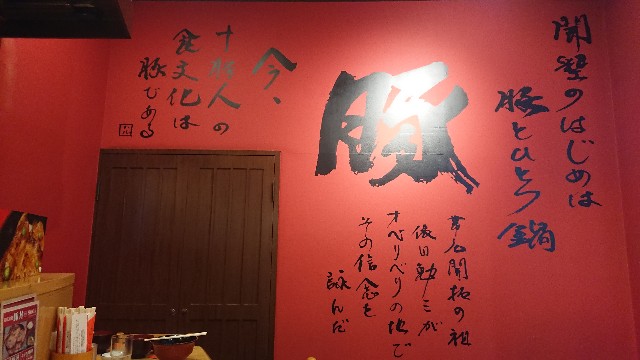 開墾のはじめは
豚とひとつ鍋
豚
帯広開拓の祖
依田勉三が
オベリベリの地で
その信念を
詠んだ
今、
十勝人の
食文化は
豚である